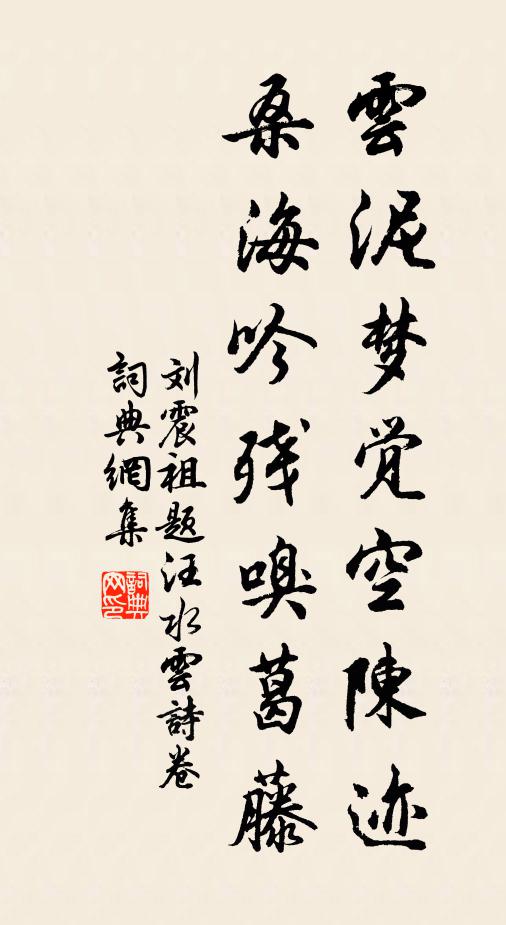 雲泥梦觉空陳迹
桑海吟残嗅葛藤
刘震祖题汪水雲詩卷
詞典網集
詞典网印